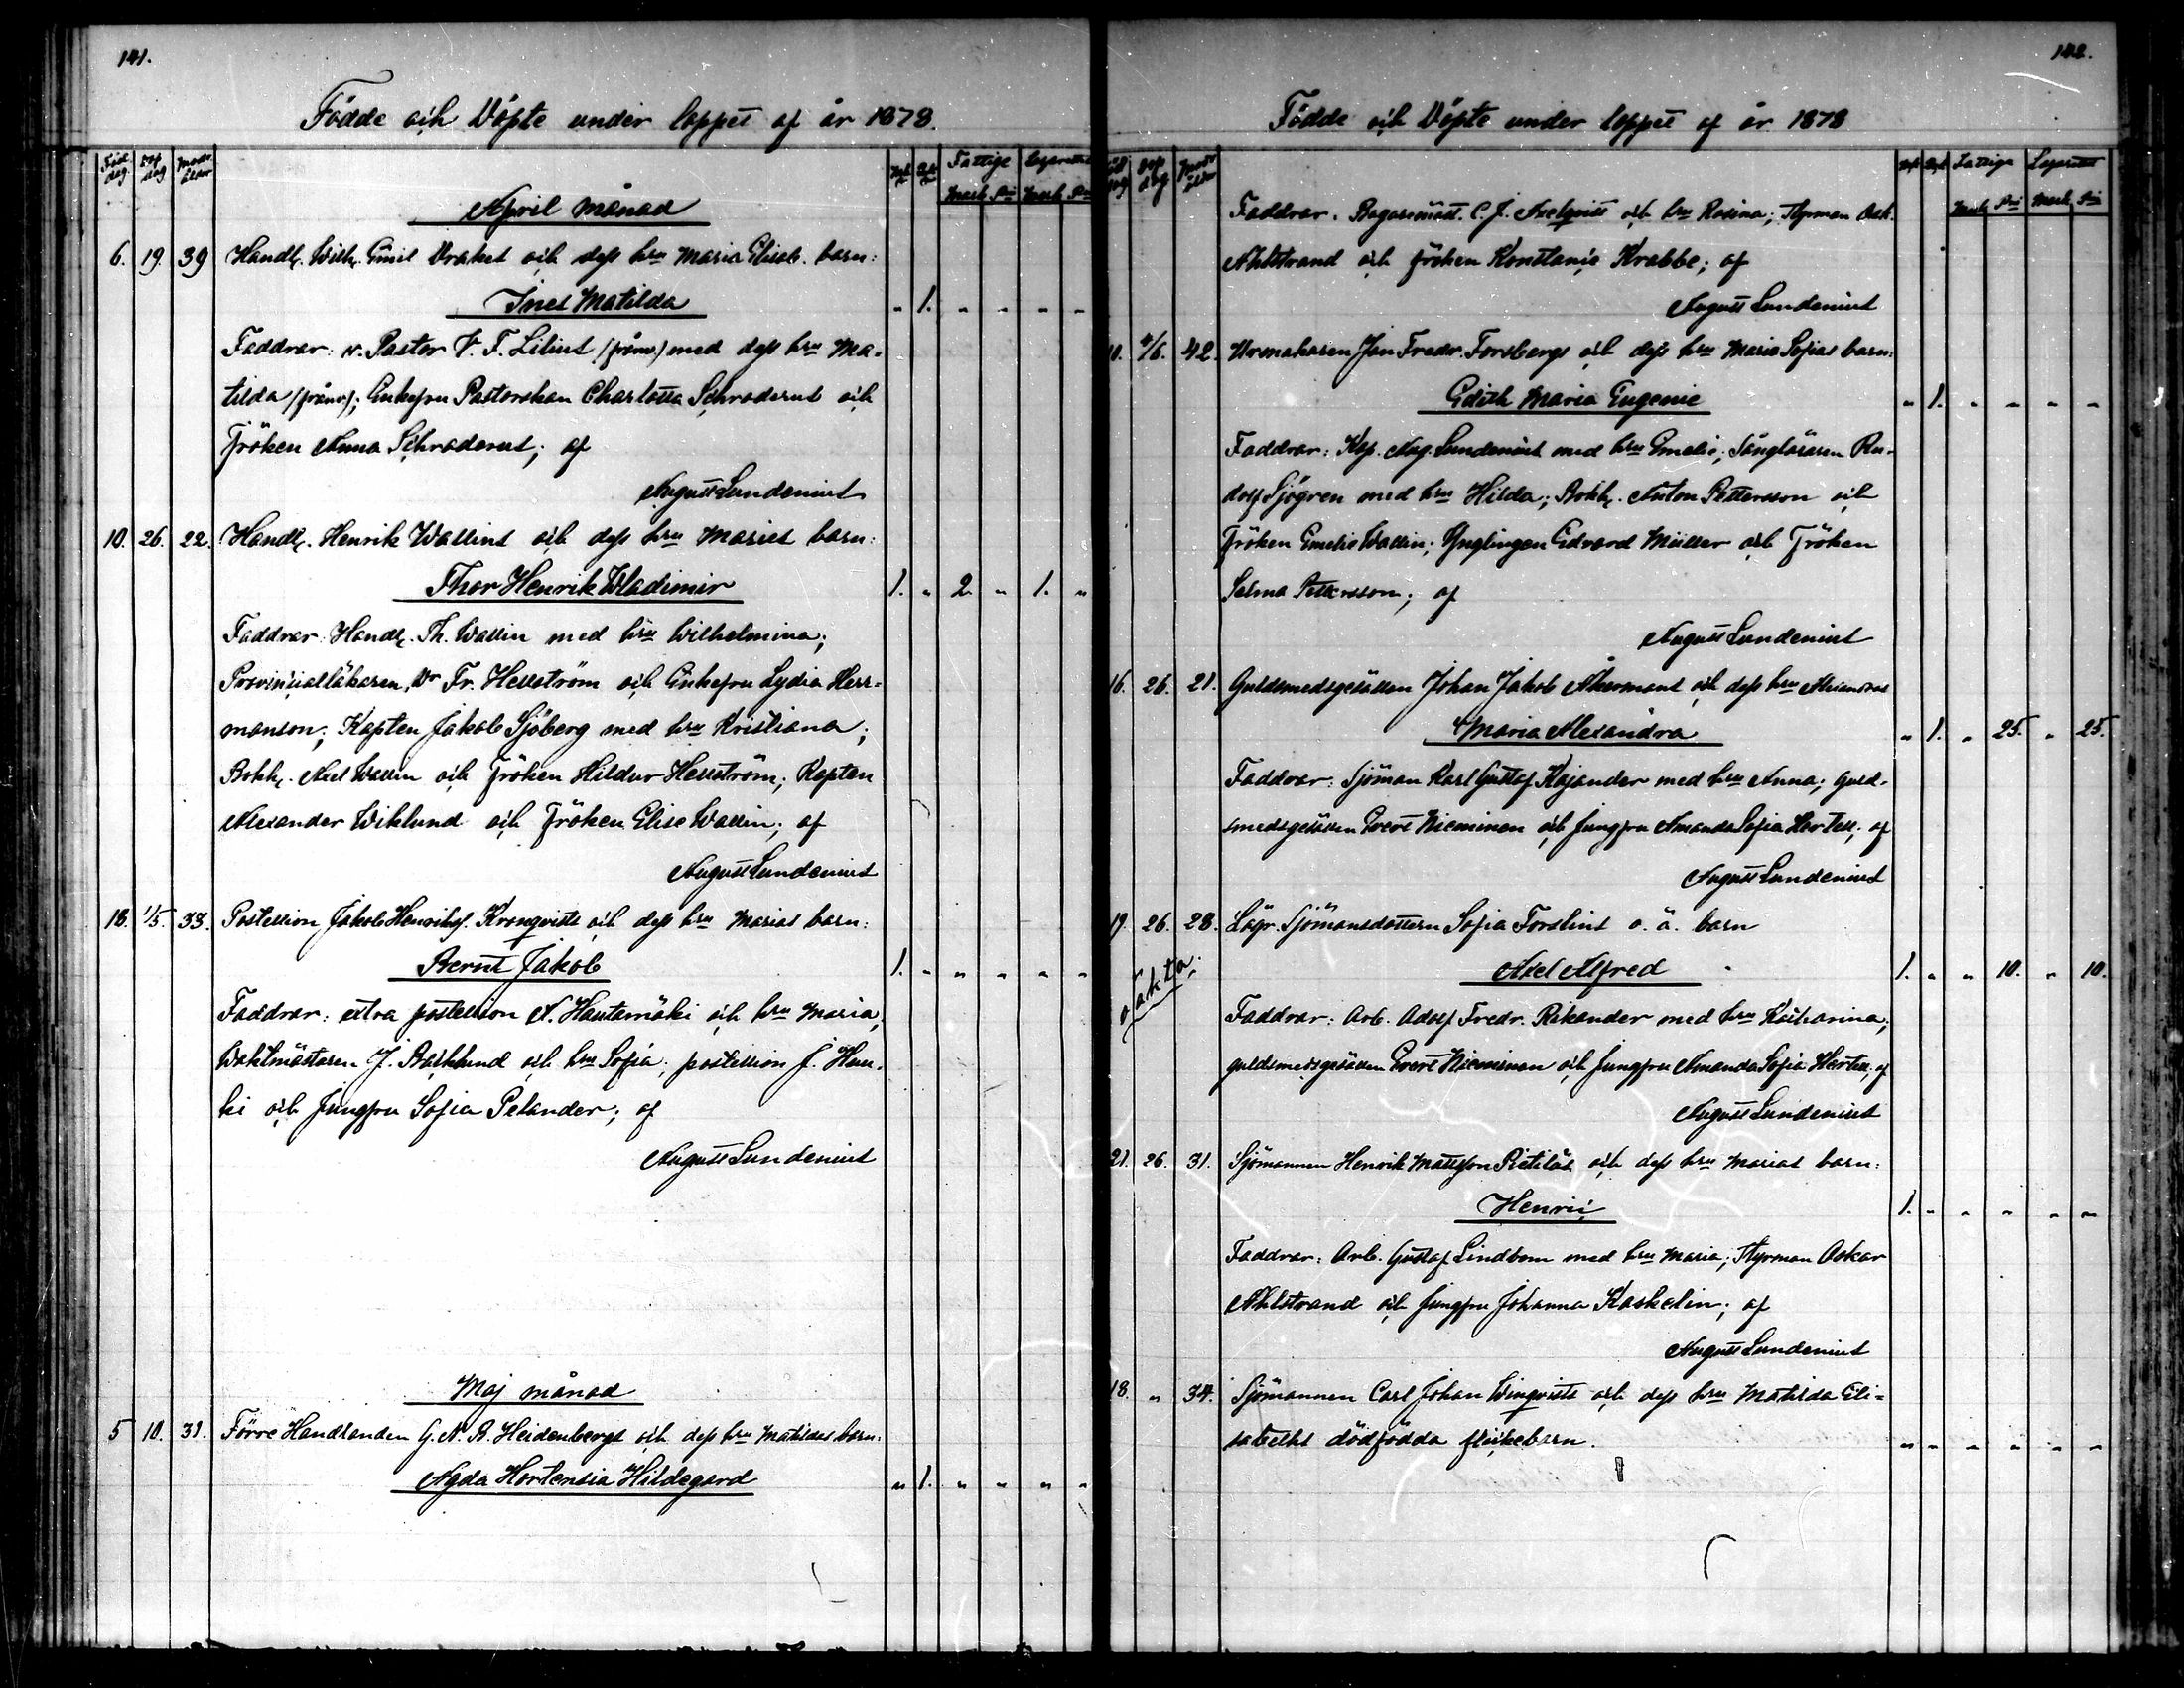 141.
Födde och Döpte under loppet af år 1878.
Föd. dag
Dop dag
Modr. ålder
Fattige
Mark Pni
Mark Pni
April månad
6. 19. 39 Handl. Wilh. Emil Drakes och dess hru Maria Elisab. barn:
Ines Matilda " 1. " " " "
Faddrar: v. Pastor V. F. Lilius (frånv) med dess hru Ma-
tilda (frånv); Enkefru Pastorskan Charlotta Schroderus och
Fröken Anna Schroderus; af
August Lundenius
10. 26. 22. Handl. Henrik Wallins och dess hru Maries barn:
Thor Henrik Wladimir 1. " 2 " 1. "
Faddrar: Handl. Th. Wallin med hru Wilhelmina;
Provincialläkaren, Dr Fr. Hellström och Enkefru Lydia Herr-
manson; Kapten Jakob Sjöberg med hru Kristiana;
Bokh. Axel Wallin och Fröken Hildur Hellström; Kapten
Alexander Wiklund och Fröken Elise Wallin; af
August Lundenius
18. 1/5. 33. Postiljon Jakob Henrikss. Kronqvists och dess hru Marias barn:
Bernt Jakob 1. " " " " "
Faddrar: extra postiljon A. Hautamäki och hru Maria,
Waktmästaren J. Backlund och hru Sofia; postiljon J. Hau-
ki och Jungfru Sofia Pelander; af
August Lundenius
Maj månad
5 10. 31. Förre Handlanden G. A. B. Heidenbergs och dess hru Matildas barn:
Agda Hortensia Hildegard " 1. " " " "
142.
Födde och Döpte under loppet af år 1878
Dop dag
Modr ålder
Fattige
Lazarettet
Mark Pni
Mark Pni
Faddrar: Bagaremäst. C. J. Axelqvist och hru Rosina; Styrman Osk.
Ahlstrand och fröken Konstanse Krabbe; af
August Lundenius
10. 4/6. 42. Urmakaren Jan Fredr. Forsbergs och dess hru Maria Sofias barn:
Edith Maria Eugenie " 1. " " " "
Faddrar: Kap. Aug. Lundenius med hru Emelie; Sångläraren Ru-
dolf Sjögren med hru Hilda; Bokh. Anton Pettersson och
Fröken Emelie Wallin; Ynglingen Edvard Müller och Fröken
Selma Pettersson; af
August Lundenius
16. 26. 21. Guldsmedsgesällen Johan Jakob Åkermans och dess hru Alexandras
Maria Alexandra " 1. " 25. " 25.
Faddrar: Sjöman Karl Gustaf Kajander med hru Anna; guld-
smedsgesällen Evert Nieminen och Jungfru Amanda Sofia Hertell; af
August Lundenius
19. 26. 28. Lösr. Sjömansdottern Sofia Forslins o. ä. barn
Axel Alfred 1. " " 10. " 10.
Faddrar: Arb. Adolf Fredr. Rikander med hru Katharina;
guldsmedsgesällen Evert Nieminen och Jungfru Amanda Sofia Hertell; af
August Lundenius
21. 26. 31. Sjömannen Henrik Mattsson Pietiläs och dess hru Marias barn:
Henric 1. " " " " "
Faddrar: Arb. Gustaf Lindbom med hru Maria; Styrman Oskar
Ahlstrand och Jungfru Johanna Kaskelin; af
August Lundenius
18. " 34. Sjömannen Carl Johan Winqvists och dess hru Matilda Eli-
sabeths dödfödda flickebarn. " " " " " "